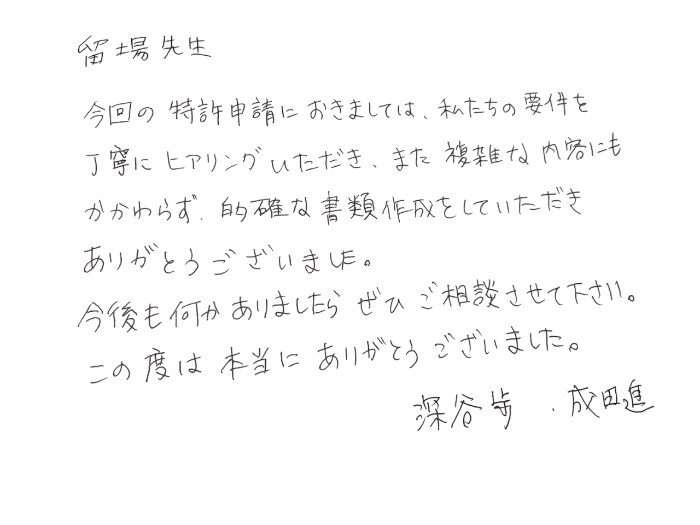 留場先生
今回の特許申請におきましては、私たちの要件を
丁寧にヒアリングいただき、また複雑な内容にも
かかわらず、的確な書類作成をしていただき
ありがとうございました。
今後も何かありましたらぜひご相談させて下さい。
この度は本当にありがとうございました。
深谷歩・成田進